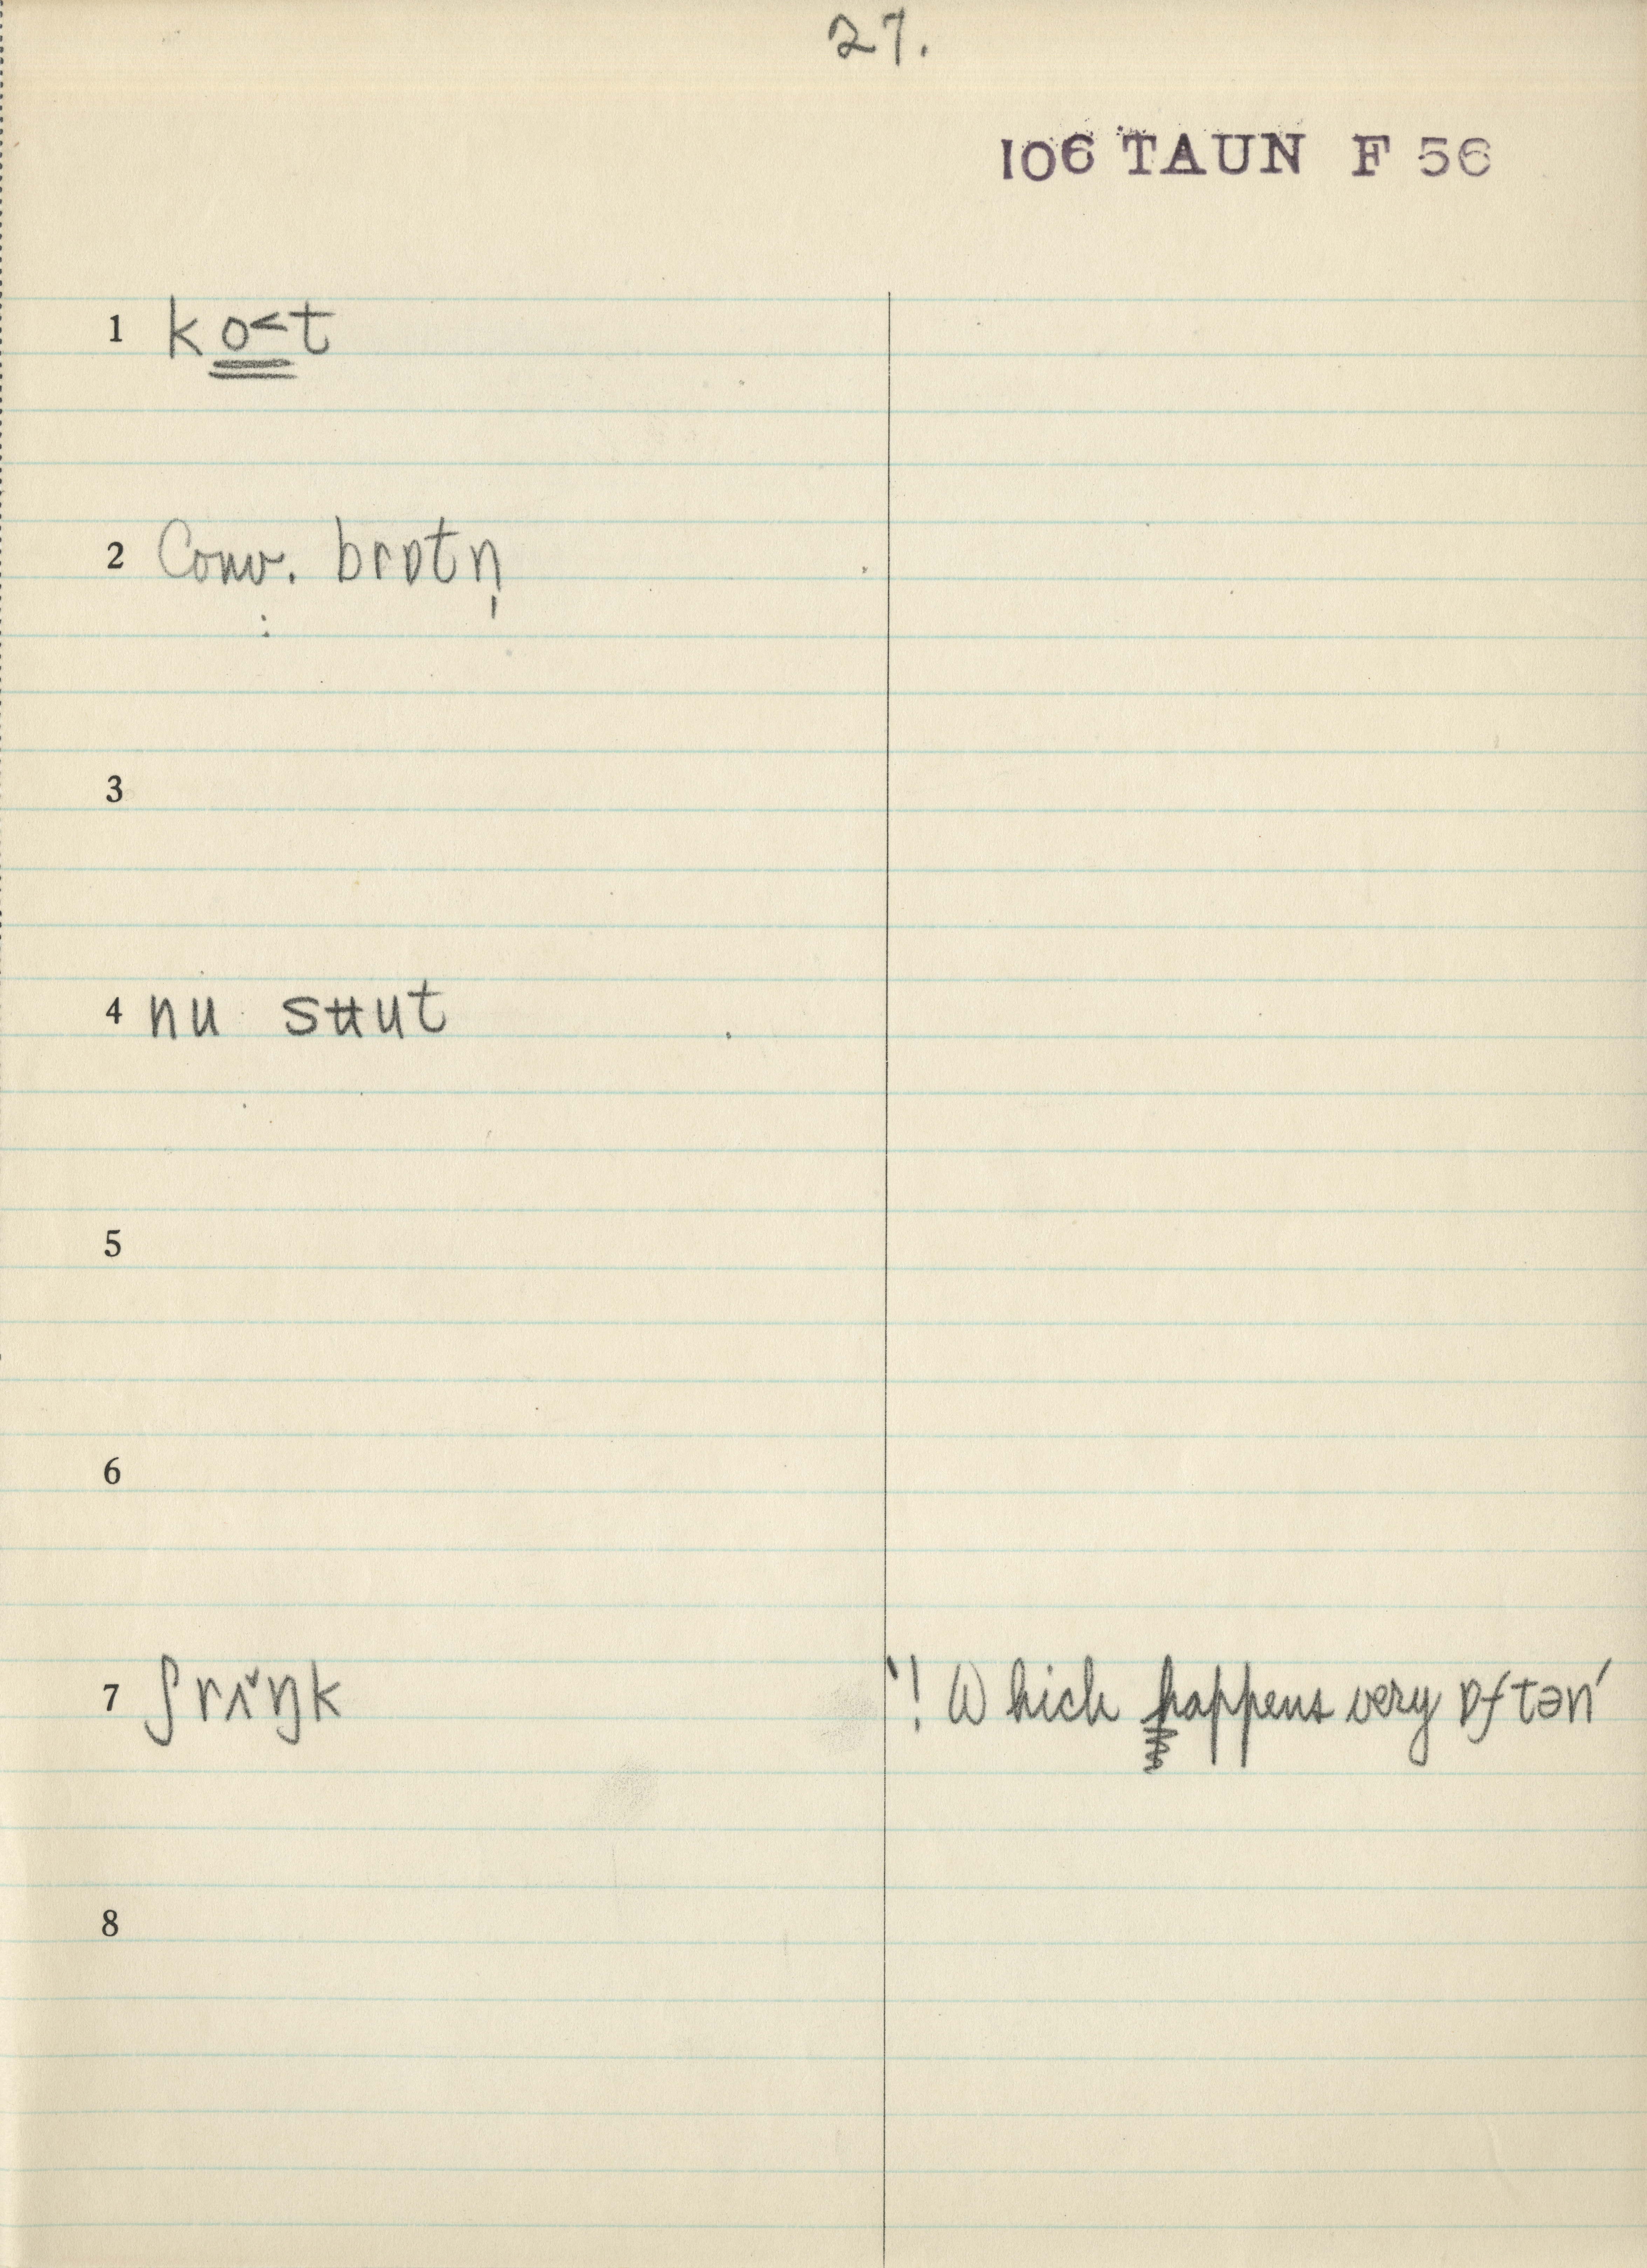 27.
106 TAUN F 56
1 ko˂t
2 Conv. brɒtn̩
3
4 nu sʉut
5
6
7 ʃrʌ̌ŋk '! Which happens very ɒftən'
8